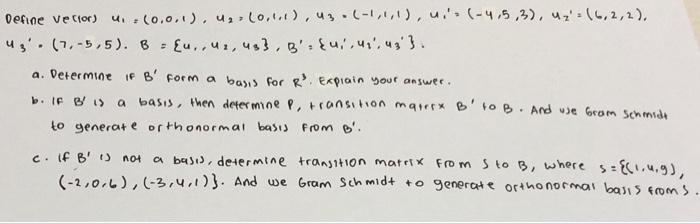 Define vectors u₁ = (0,0,1), u₂ = (0,1,1), u₃ = (-1,1,1), u₁' = (-4,5,3), u₂' = (6,2,2),
u₃' = (7,-5,5). B = {u₁, u₂, u₃}, B' = {u₁', u₂', u₃'}.
a. Determine IF B' form a basis for R³. Explain your answer.
b. IF B' is a basis, then determine P, transition matrix B' to B. And use Gram Schmidt
to generate orthonormal basis from B'.
c. if B' is not a basis, determine transition matrix from S to B, where s = {(1,4,9),
(-2,0,6), (-3,4,1)}. And use Gram Schmidt to generate orthonormal basis from S.